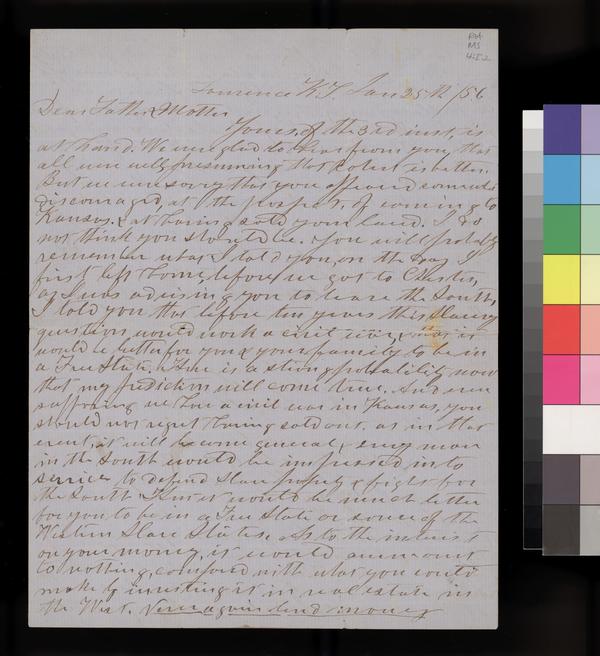 RH
MS
Lawrence K.T. Jan 25th /56
Dear Father & Mother
Yours, of the 3rd inst, is
at hand. We were glad to hear from you, that
all were well, presuming that is better.
But we were sorry that you appeared somewhat
discouraged, at the prospect, of coming to
Kansas, & at having sold your land. I do
not think you should be. You will probably
remember what I told you, on the day I
first left home, before we got to Chester,
as I was advising you to leave the South,
I told you that before ten years this Slavery
question would work a civil war, & that it
would be better for you & your family to be in
a Free State. There is a strong probability now
that my prediction will come true. And even
suffering we have a civil war in Kansas, you
should not regret having sold out, as in that
event, it will become general, & every man
in the South would be impressed into
service to defend Slave property & fight for
the South. Hence it would be much better
for you to be in a Free State or some of the
Western Slave States. As to the interest
on your money, it would amount
to nothing, compared with what you could
make by investing it in real estate in
the West. Never again lend money